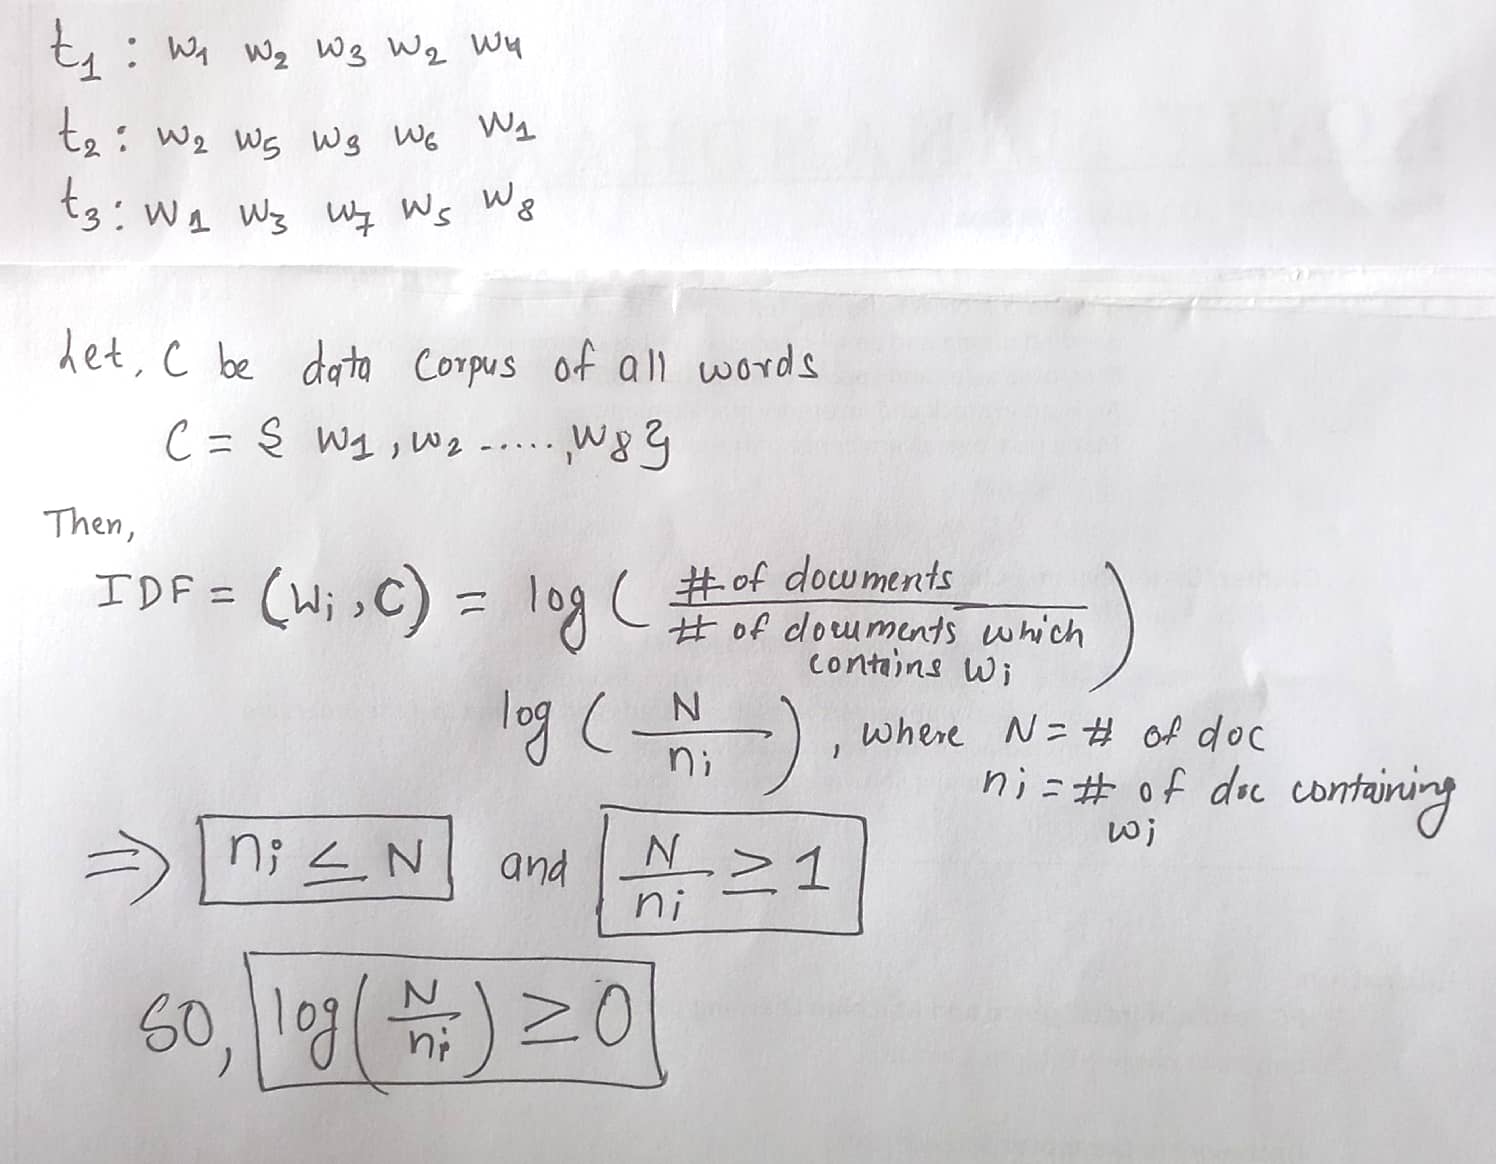 t1 : w1 w2 w3 w2 w4
t2 : w2 w5 w3 w6 w1
t3 : w1 w3 w7 w5 w8
Let, C be data corpus of all words
C = { w1, w2 ....., w8 }
Then,
IDF = (wi, C) = log ( # of documents
# of documents which
contains wi )
log ( N / ni ) , where N = # of doc
ni = # of doc containing
wi
⇒ ni ≤ N and N / ni ≥ 1
so, log( N / ni ) ≥ 0